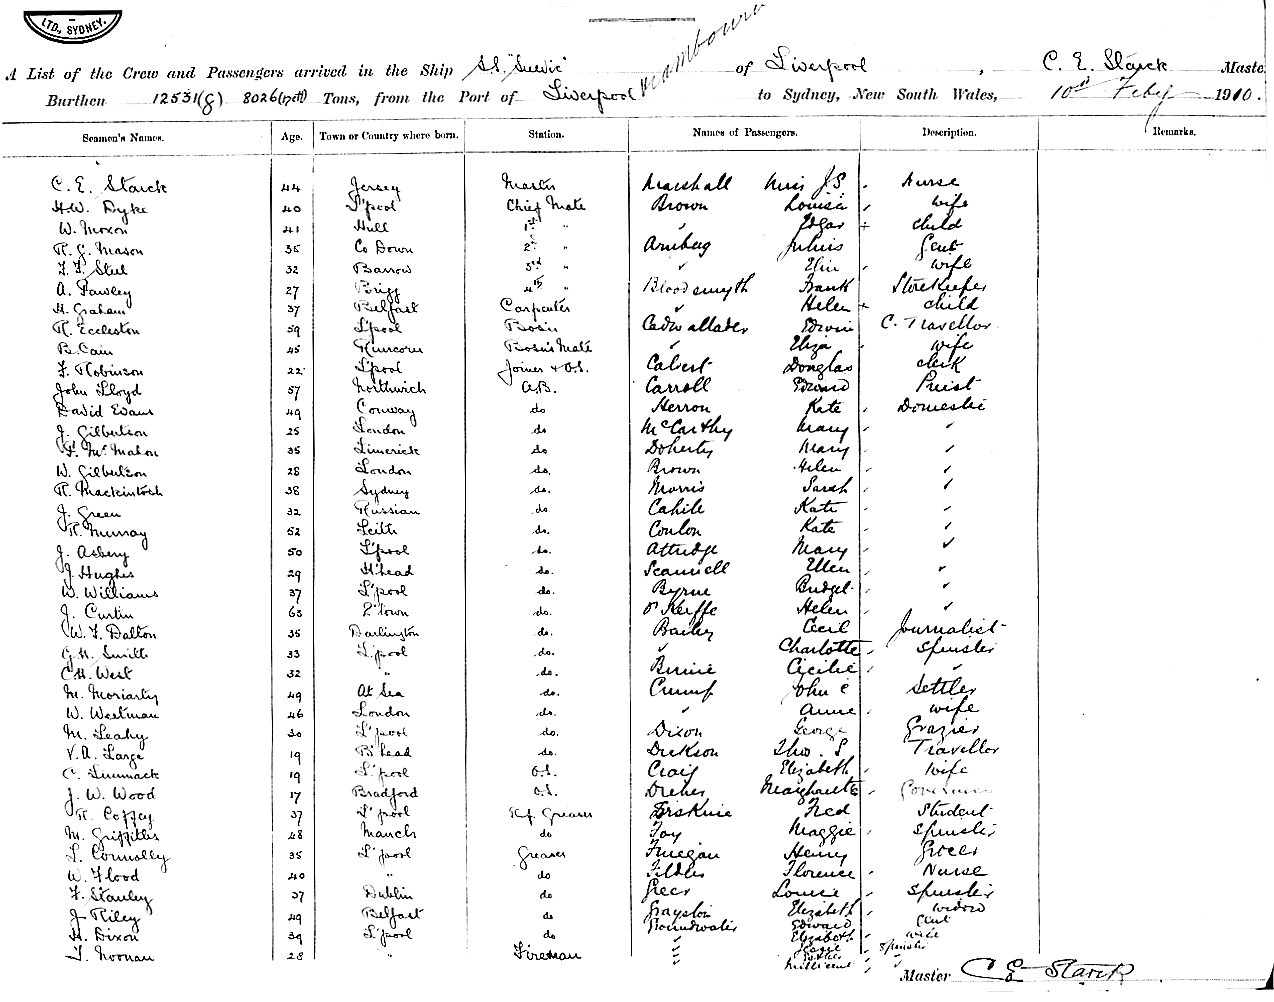 LTD., SYDNEY.
A List of the Crew and Passengers arrived in the Ship S.S. "Suevic" of Liverpool, C. E. Starck Maste
Burthen 12531(g) 8026(nett) Tons, from the Port of Liverpool to Sydney, New South Wales, 10th Feby 1910.
Seamen's Names. Age. Town or Country where born. Station. Names of Passengers. Description. Remarks.
C. E. Starck 44 Jersey Master Marshall Miss J S Nurse
H.W. Dyke 40 L'pool Chief Mate Brown Louisa wife
W. Moxon 41 Hull 1st " " Edgar child
R. G. Mason 35 Co Down 2d " Julius Gent
32 Barrow 3rd " " wife
A. Pawley 27 Brigg 4th " Bloodsmyth Frank Storekeeper
H. Graham 37 Belfast Carpenter " Helen child
R. Eccleston 59 L'pool Bos'n Cadwallader Edwin C. Travellor
B. Cain 45 Runcorn Bosn's Mate " Eliza wife
F. Robinson 22 L'pool Joiner & O.S. Calvert Douglas clerk
John Lloyd 57 Northwich A.B. Carroll Edward Priest
David Evans 49 Conway do Herron Kate Domestic
J. Gilbertson 25 London do McCarthy Mary "
F. McMahon 35 Limerick do Doherty Mary "
W. Gilbertson 28 London do. Brown Helen "
R. Mackintosh 38 Sydney do. Morris Sarah "
J. Green 32 Russian do. Cahill Kate "
R. Murray 52 Leith do. Conlon Kate "
J. Asbery 50 L'pool do. Attridge Mary "
J. Hughes 29 H'head do. Scannell Ellen "
W. Williams 37 L'pool do. Byrne Bridget "
J. Curtin 63 Q'town do. O'Keiffe Helen "
W. F. Dalton 35 Darlington do. Bailey Cecil Journalist
G.H. Smith 33 L'pool do. " Charlotte Spinster
C.H. West 32 " do. Birnie Cecilie "
M. Moriarty 49 At Sea do. Crump John E Settler
W. Weetman 46 London do. " Annie wife
M. Leahy 30 L'pool do. Dixon George Grazier
V. A. Large 19 B'head do. Dickson Thos. S. Travellor
C. Limmack 19 L'pool O.S. Craig Elizabeth wife
J. W. Wood 17 Bradford O.S. Dreher Margharette
R. Coffey 37 L'pool Ref. Greaser Erskine Fred Student
M. Griffiths 48 Manch do Foy Maggie Spinster
L. Connolly 35 L'pool Greaser Finegan Henry Grocer
W. Flood 40 " do Fildes Florence Nurse
F. Stanley 37 Dublin do Greer Louise Spinster
J. Riley 49 Belfast do Grayston Elizabeth widow
H. Dixon 39 L'pool do Groundwater Edward
" Elizabeth wife
T. Noonan 28 " Fireman " Jessie Spinster
" Millicent "
Master C E Starck